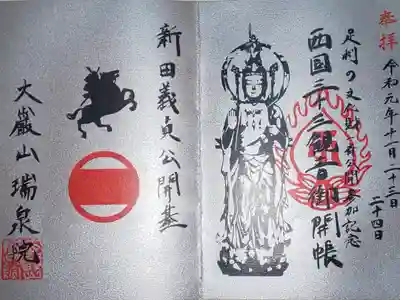 奉拝
令和元年十一月二十三日
二十四日
足利の文化財一斉公開参加記念
西国三十三観音御開帳
新田義貞公開基
大巌山瑞泉院